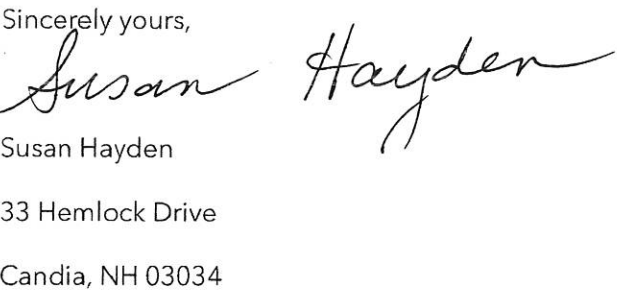 Sincerely yours,
Susan Hayden
Susan Hayden
33 Hemlock Drive
Candia, NH 03034